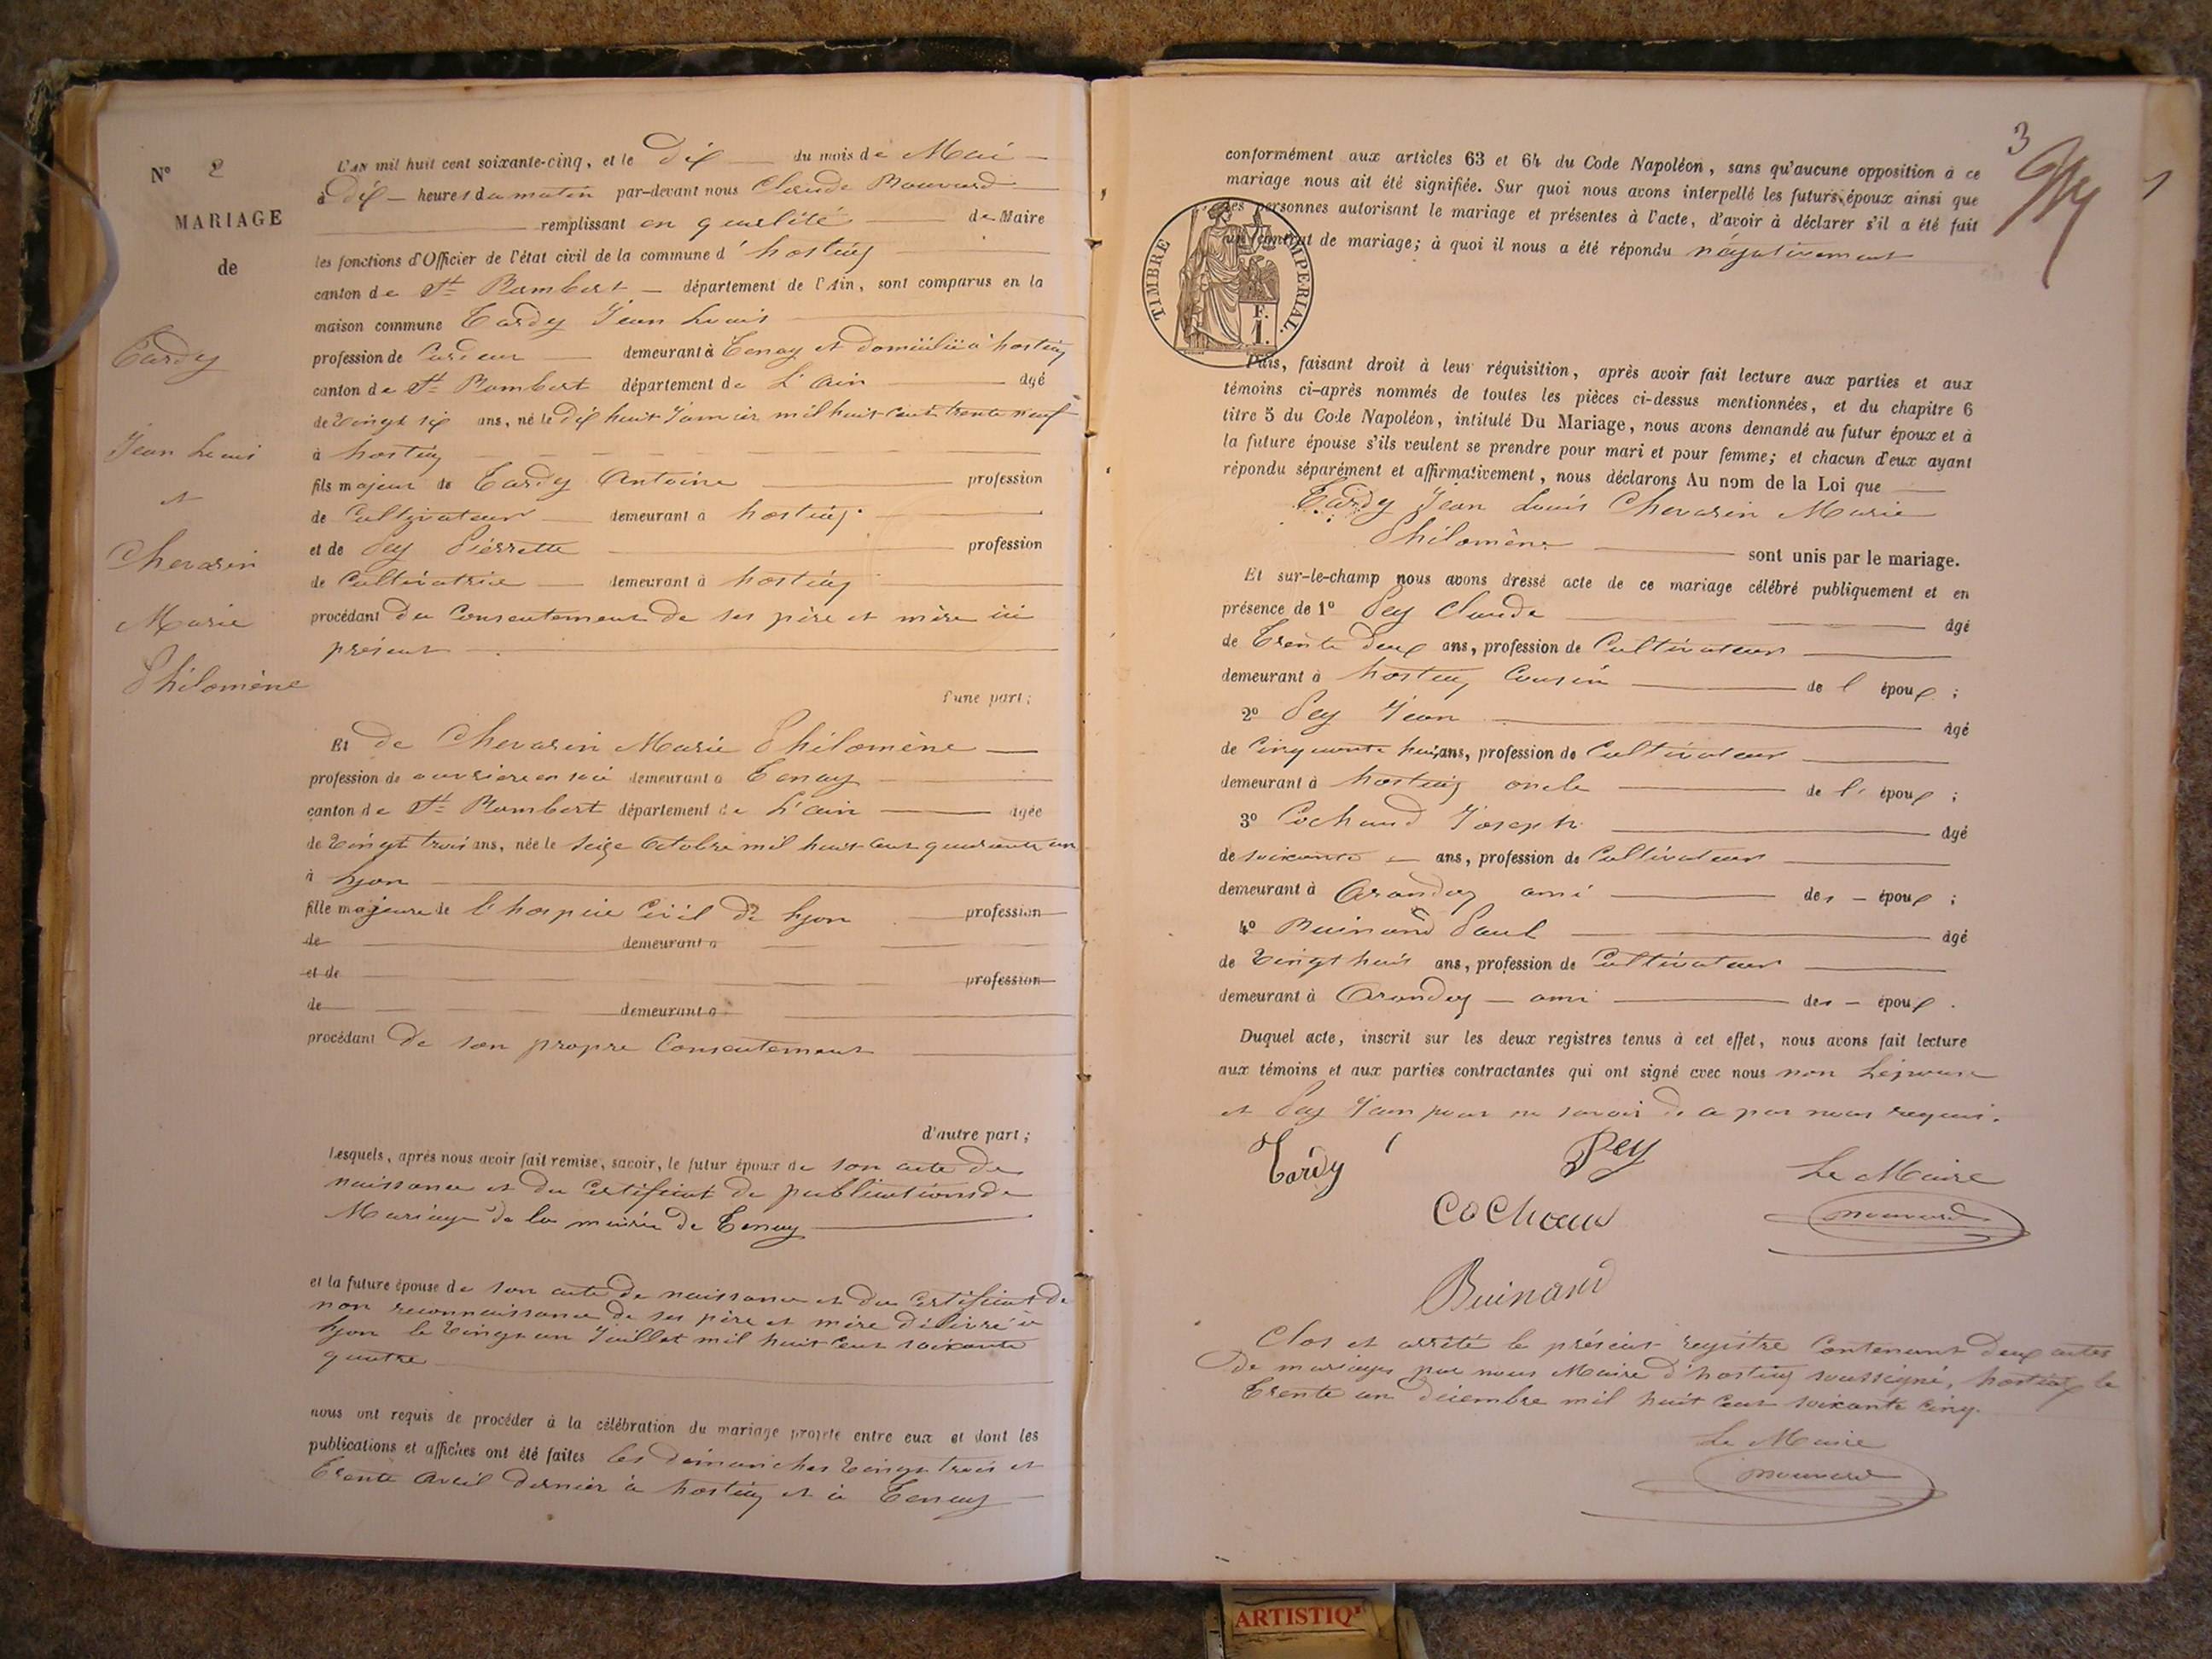 N° 2
MARIAGE
de
Tardy
Jean Louis
et
Chevasin
Marie
Philomène
L'AN mil huit cent soixante-cinq, et le Dix du mois de Mai
à Dix heures du matin par-devant nous Claude Bouvard
remplissant en qualité de Maire
les fonctions d'Officier de l'état civil de la commune d' hostiaz
canton de St Rambert département de l'Ain, sont comparus en la
maison commune Tardy Jean Louis
profession de Cardeur demeurant à Tenay et domicilié à hostiaz
canton de St Rambert département de L'ain âgé
de Vingt six ans, né le Dix huit Janvier mil huit cent trente neuf
à hostiaz
fils majeur de Tardy Antoine profession
de Cultivateur demeurant à hostiaz
et de Pey Pierrette profession
de Cultivatrice demeurant à hostiaz
procédant du Consentement de ses père et mère ici
présent
d'une part;
Et de Chevasin Marie Philomène
profession de ouvrière en soie demeurant à Tenay
canton de St Rambert département de L'ain âgée
de Vingt trois ans, née le Seize Octobre mil huit cent quarante un
à Lyon
fille majeure de l'hospice Civil de Lyon profession
de demeurant à
et de profession
de demeurant à
procédant de son propre Consentement
d'autre part;
Lesquels, après nous avoir fait remise, savoir, le futur époux de son acte de
naissance et du Certificat de publications de
Mariage de la mairie de Tenay
et la future épouse de son acte de naissance et du Certificat de
non reconnaissance de ses père et mère délivré à
Lyon le Vingt un Juillet mil huit cent soixante
quatre
nous ont requis de procéder à la célébration du mariage projeté entre eux et dont les
publications et affiches ont été faites les dimanches Vingt trois et
Trente Avril dernier à hostiaz et à Tenay
3
1
conformément aux articles 63 et 64 du Code Napoléon, sans qu'aucune opposition à ce
mariage nous ait été signifiée. Sur quoi nous avons interpellé les futurs époux ainsi que
les personnes autorisant le mariage et présentes à l'acte, d'avoir à déclarer s'il a été fait
un contrat de mariage; à quoi il nous a été répondu négativement
TIMBRE IMPERIAL.
1 F.
Puis, faisant droit à leur réquisition, après avoir fait lecture aux parties et aux
témoins ci-après nommés de toutes les pièces ci-dessus mentionnées, et du chapitre 6
titre 5 du Code Napoléon, intitulé Du Mariage, nous avons demandé au futur époux et à
la future épouse s'ils veulent se prendre pour mari et pour femme; et chacun d'eux ayant
répondu séparément et affirmativement, nous déclarons Au nom de la Loi que
Tardy Jean Louis Chevasin Marie
Philomène sont unis par le mariage.
Et sur-le-champ nous avons dressé acte de ce mariage célébré publiquement et en
présence de 1° Pey Claude âgé
de Trente deux ans, profession de Cultivateur
demeurant à hostiaz Cousin de l époux ;
2° Pey Jean âgé
de Cinquante huit ans, profession de Cultivateur
demeurant à hostiaz oncle de l' époux ;
3° Cochaud Joseph âgé
de soixante ans, profession de Cultivateur
demeurant à Arandas ami des époux ;
4° Buinand Paul âgé
de Vingt huit ans, profession de Cultivateur
demeurant à Arandas ami des époux .
Duquel acte, inscrit sur les deux registres tenus à cet effet, nous avons fait lecture
aux témoins et aux parties contractantes qui ont signé avec nous non L'épouse
et Pey Jean pour ne savoir de ce par nous requis.
Tardy
Pey
Le Maire
Cochaud
Bouvard
Buinand
Clos et arrêté le présent registre Contenant deux actes
de mariages par nous Maire d'hostiaz soussigné, hostiaz le
Trente un Décembre mil huit Cent soixante Cinq.
Le Maire
Bouvard
ARTISTIQ